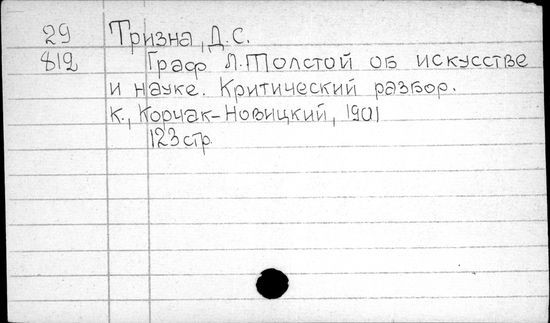 29 Тризна, Д.С.
812 Граф Л.Толстой об искусстве
и науке. Критический разбор.
К., Корчак-Новицкий, 1901
123 стр.